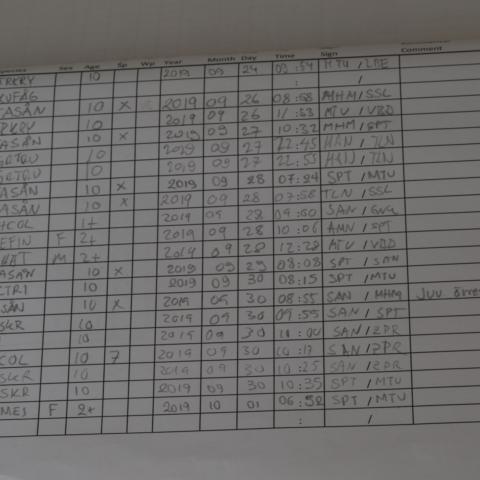 Species Sex Age Sp Wp Year Month Day Time Sign Comment
10 2019 09 24 03:54 MTU /
: /
ASÅN 10 X 2019 09 26 08:58 MHM/SSL
10 2019 09 26 11:53 MTU / VBD
ASÅN 10 X 2019 09 27 10:32 MHM/SPT
10 2019 09 27 22:45 HAN/TLN
10 2019 09 27 22:55 HAN/TLN
ASÅN 10 X 2019 09 28 07:24 SPT / MTU
ASÅN 10 X 2019 09 28 07:58 TLN / SSL
HCOL 1+ 2019 09 28 SAN /
EFIN F 2+ 2019 09 28 10:06 AMN / SPT
M 2+ 2019 09 28 12:28 MTU / VBD
ASÅN 10 X 2019 09 29 08:08 SPT / SAN
CTRI 10 2019 09 30 08:15 SPT / MTU
SÅN 10 X 2019 09 30 08:55 SAN / MHM Juv
SKR 10 2019 09 30 09:55 SAN / SPT
10 2019 09 30 11:00 SAN/ZPR
COL 10 7 2019 09 30 10:17 SAN/ZPR
SKR 10 2019 09 30 10:25 SAN/ZPR
SKR 10 2019 09 30 10:35 SPT / MTU
MES F 2+ 2019 10 01 06:58 SPT / MTU
: /